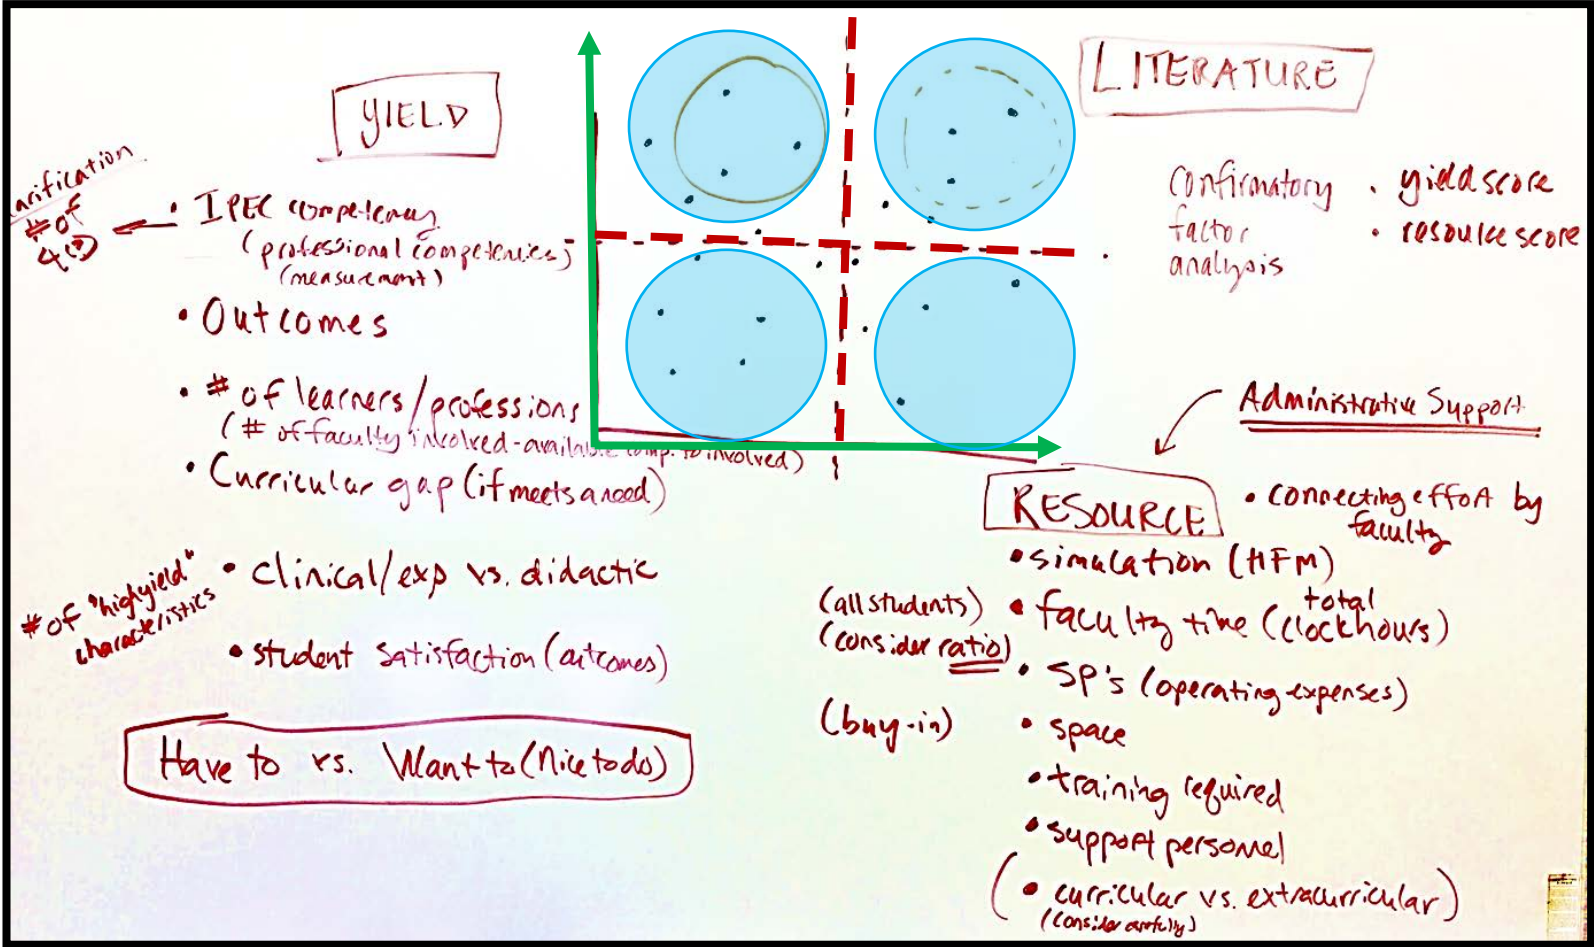 YIELD
arification
# of
4(?)
• IPEC competency
(professional competencies)
(measurement)
• Outcomes
• # of learners/professions
(# of faculty involved-available comp. to involved)
• Curricular gap (if meets a need)
# of "high yield"
characteristics
• clinical/exp vs. didactic
• student satisfaction (outcomes)
Have to vs. Want to (Nice to do)
LITERATURE
Confirmatory
factor
analysis
• yield score
• resource score
Administrative Support
RESOURCE
• connecting effort by
faculty
• simulation (HFM)
(all students)
(consider ratio)
• faculty time (total clock hours)
• SP's (operating expenses)
(buy-in)
• space
• training required
• support personnel
(• curricular vs. extracurricular)
(consider carefully)